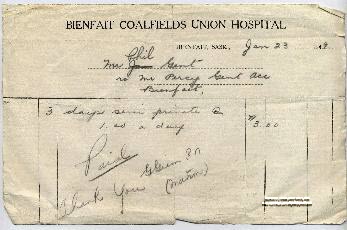 BIENFAIT COALFIELDS UNION HOSPITAL
BIENFAIT, SASK., Jan 23
Phil
Mr Gent
to Mr Percy Gent Acc
Bienfait.
3 days semi private @
1.00 a day
3.00
Paid
Thank You
(Matron)